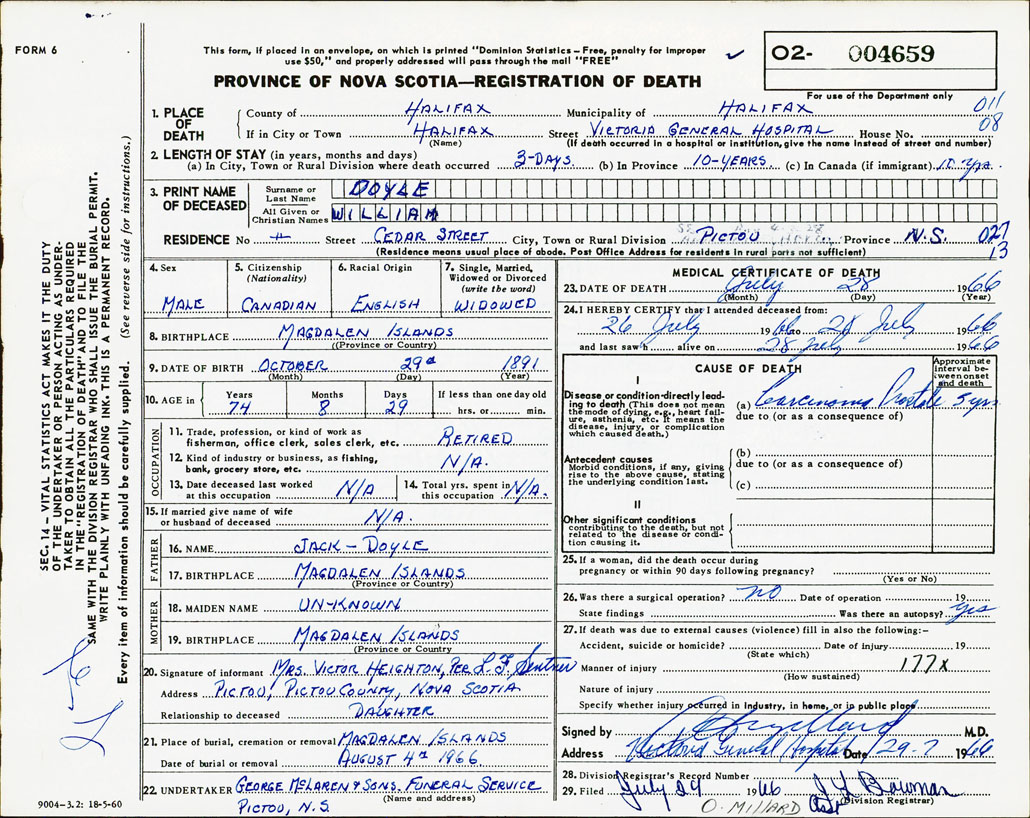 FORM 6
This form, if placed in an envelope, on which is printed "Dominion Statistics – Free, penalty for improper
use $50," and properly addressed will pass through the mail "FREE"
PROVINCE OF NOVA SCOTIA—REGISTRATION OF DEATH
O2- 004659
For use of the Department only
011
08
1. PLACE OF DEATH
County of HALIFAX Municipality of HALIFAX
If in City or Town HALIFAX Street VICTORIA GENERAL HOSPITAL House No.
(Name) (If death occurred in a hospital or institution, give the name instead of street and number)
2. LENGTH OF STAY (in years, months and days)
(a) In City, Town or Rural Division where death occurred 3-DAYS (b) In Province 10-YEARS (c) In Canada (if immigrant)
3. PRINT NAME OF DECEASED
Surname or Last Name DOYLE
All Given or Christian Names WILLIAM
RESIDENCE No Street CEDAR STREET City, Town or Rural Division PICTOU Province N.S. 027
13
(Residence means usual place of abode. Post Office Address for residents in rural parts not sufficient)
4. Sex
MALE
5. Citizenship
(Nationality)
CANADIAN
6. Racial Origin
ENGLISH
7. Single, Married,
Widowed or Divorced
(write the word)
WIDOWED
8. BIRTHPLACE MAGDALEN ISLANDS
((Province or Country)
9. DATE OF BIRTH OCTOBER 29th 1891
(Month) (Day) (Year)
10. AGE in Years Months Days If less than one day old
74 8 29 hrs. or min.
OCCUPATION
11. Trade, profession, or kind of work as
fisherman, office clerk, sales clerk, etc. RETIRED
12. Kind of industry or business, as fishing,
bank, grocery store, etc. N/A.
13. Date deceased last worked
at this occupation N/A
14. Total yrs. spent in
this occupation N/A.
15. If married give name of wife
or husband of deceased N/A.
FATHER
16. NAME JACK – DOYLE
17. BIRTHPLACE MAGDALEN ISLANDS
(Province or Country)
MOTHER
18. MAIDEN NAME UN-KNOWN
19. BIRTHPLACE MAGDALEN ISLANDS
(Province or Country
20. Signature of informant MRS. VICTOR HEIGHTON, PER L. F. Sentner
Address PICTOU, PICTOU COUNTY, NOVA SCOTIA
Relationship to deceased DAUGHTER
21. Place of burial, cremation or removal MAGDALEN ISLANDS
Date of burial or removal AUGUST 4th 1966
22. UNDERTAKER GEORGE MCLAREN & SONS. FUNERAL SERVICE
(Name and address)
PICTOU, N.S.
9004–3.2: 18-5-60
MEDICAL CERTIFICATE OF DEATH
23. DATE OF DEATH July 28 1966
(Month) (Day) (Year)
24. I HEREBY CERTIFY that I attended deceased from:
26 July 1966 to 28 July 1966
and last saw h alive on 28 July 1966
CAUSE OF DEATH
Approximate
interval be-
tween onset
and death
I
Disease or condition directly lead-
ing to death (This does not mean
the mode of dying, e.g., heart fail-
ure, asthenia, etc. It means the
disease, injury, or complication
which caused death.)
(a) Carcinoma Prostate 5 yrs
due to (or as a consequence of)
Antecedent causes
Morbid conditions, if any, giving
rise to the above cause, stating
the underlying condition last.
(b)
due to (or as a consequence of)
(c)
II
Other significant conditions
contributing to the death, but not
related to the disease or condi-
tion causing it.
25. If a woman, did the death occur during
pregnancy or within 90 days following pregnancy?
(Yes or No)
26. Was there a surgical operation? no Date of operation 19
State findings Was there an autopsy? yes
27. If death was due to external causes (violence) fill in also the following:–
Accident, suicide or homicide? Date of injury 19
(State which)
Manner of injury 177x
(How sustained)
Nature of injury
Specify whether injury occurred in Industry, in home, or in public place
Signed by M.D.
Address Victoria General Hospital Date 29-7 1966
28. Division Registrar's Record Number
29. Filed July 29 1966 Bowman
(Division Registrar)
O. MILLARD Asst
SEC. 14 – VITAL STATISTICS ACT MAKES IT THE DUTY
OF THE UNDERTAKER OR PERSON ACTING AS UNDER-
TAKER TO OBTAIN ALL THE PARTICULARS REQUIRED
IN THE "REGISTRATION OF DEATH" AND TO FILE THE
SAME WITH THE DIVISION REGISTRAR WHO SHALL ISSUE THE BURIAL PERMIT.
WRITE PLAINLY WITH UNFADING INK. THIS IS A PERMANENT RECORD.
Every item of information should be carefully supplied. (See reverse side for instructions.)